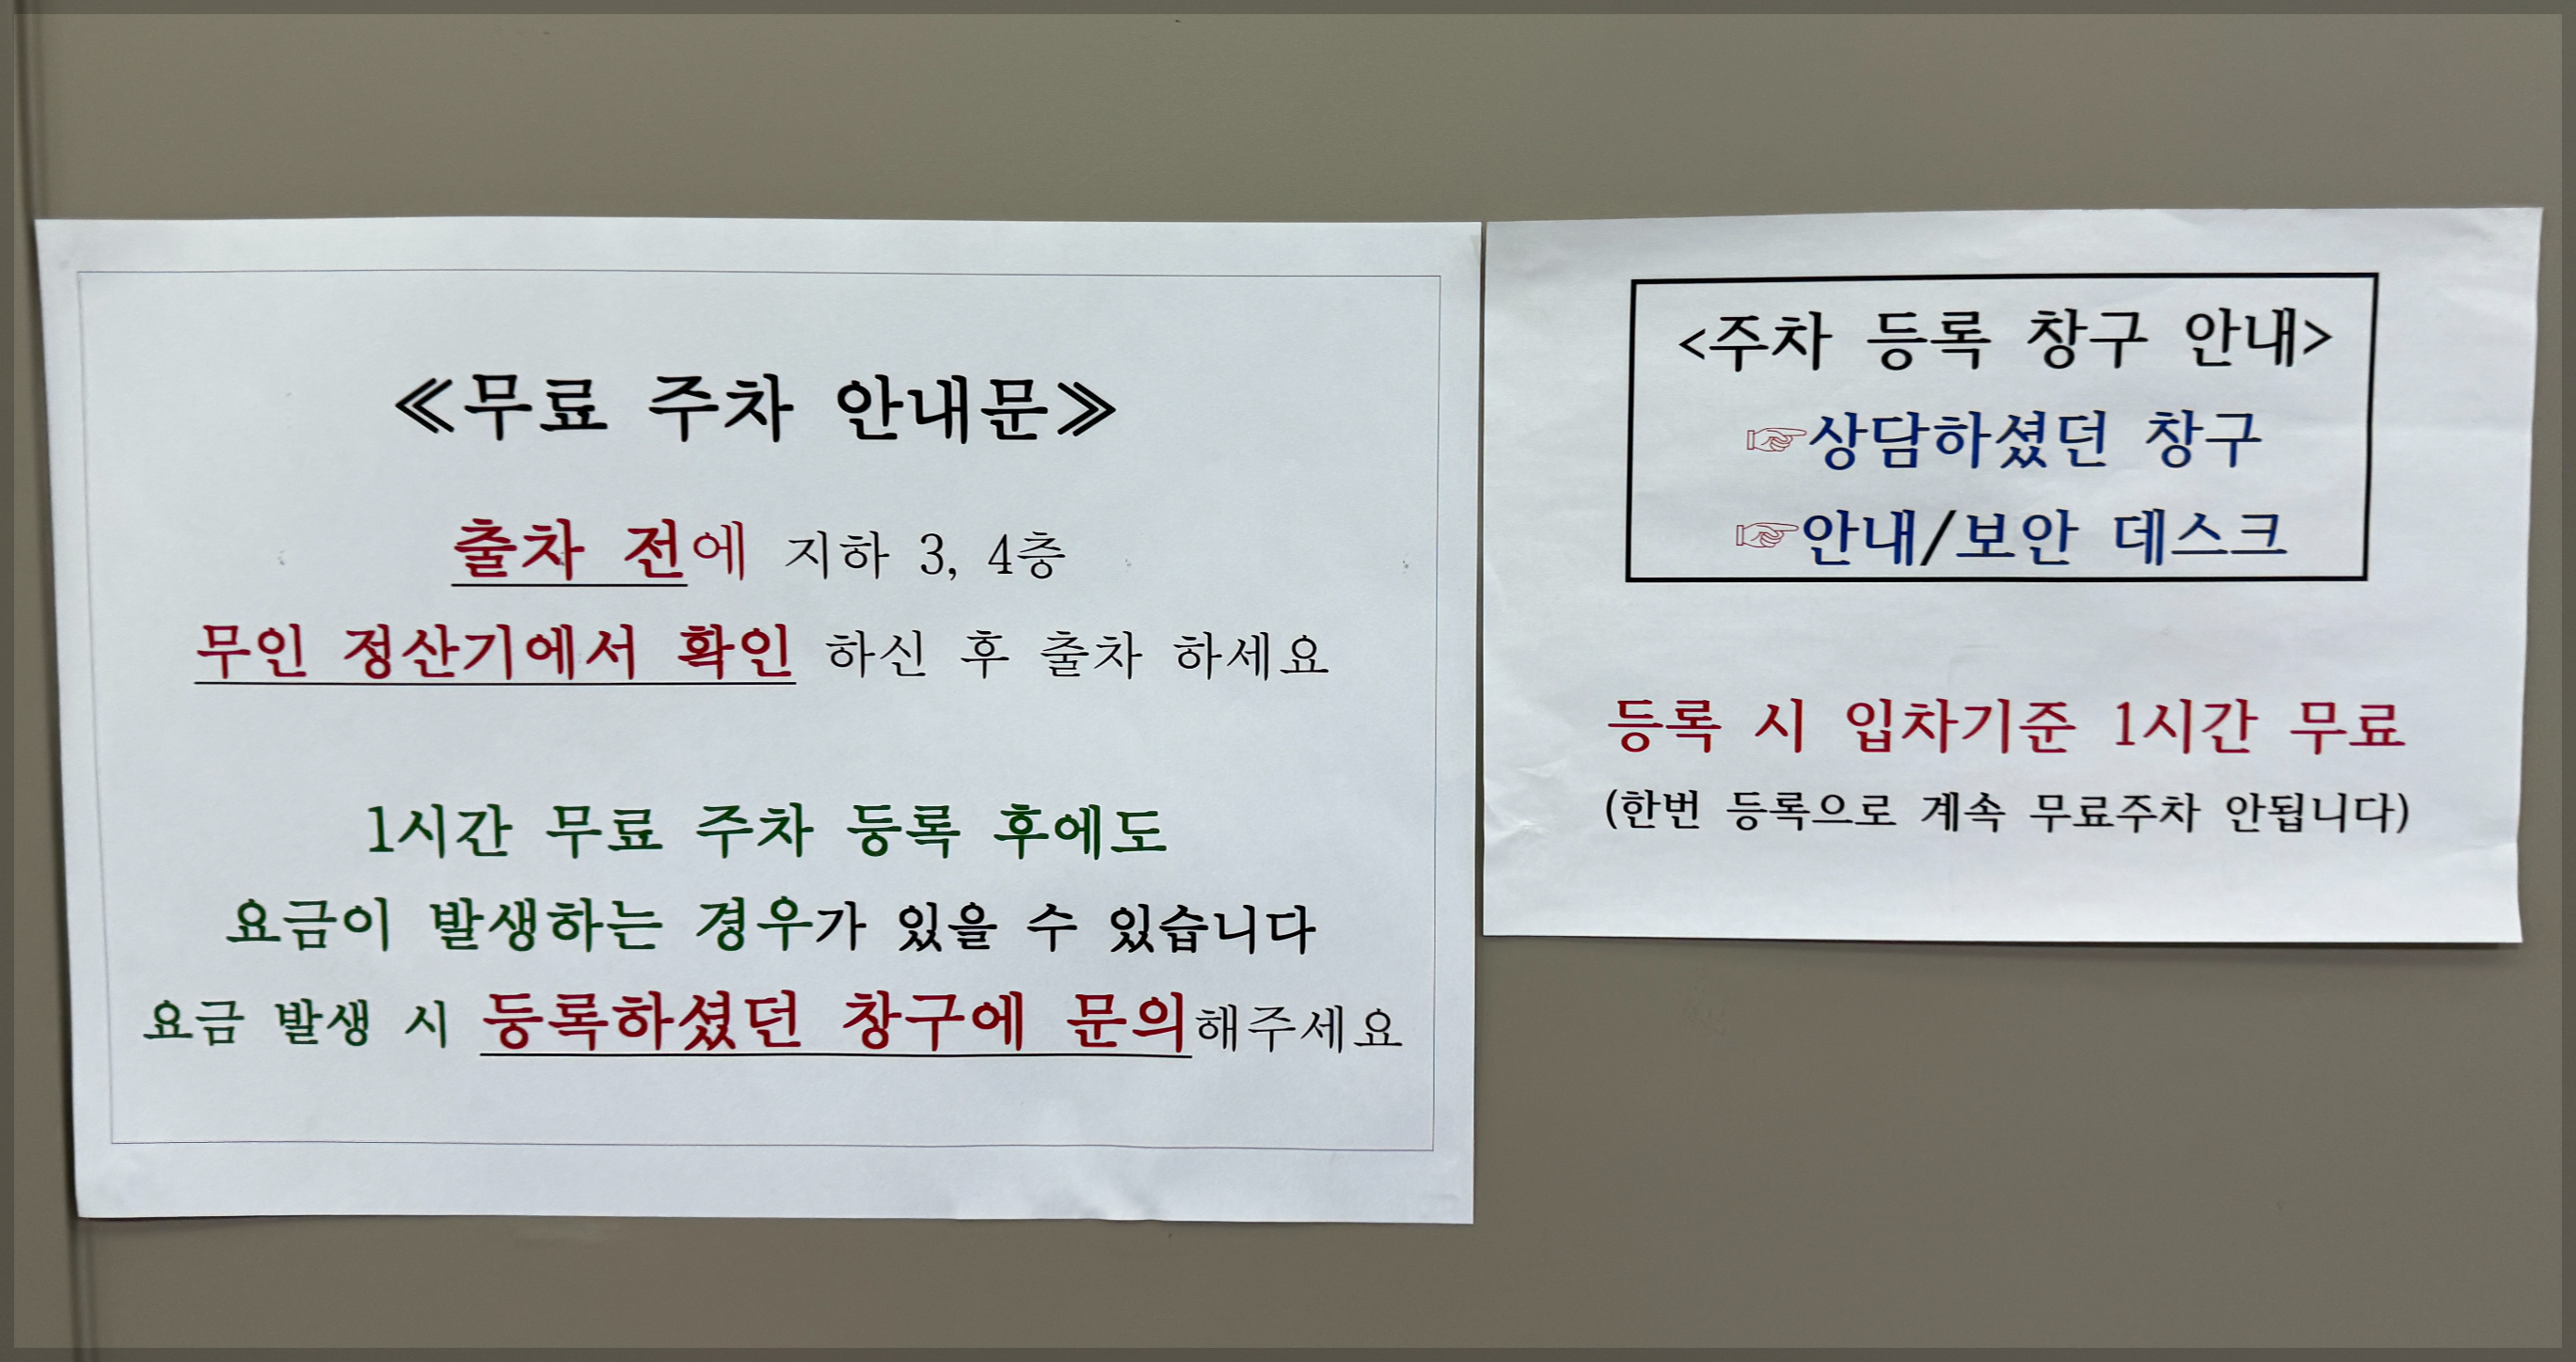 ≪무료 주차 안내문≫
출차 전에 지하 3, 4층
무인 정산기에서 확인 하신 후 출차 하세요
1시간 무료 주차 등록 후에도
요금이 발생하는 경우가 있을 수 있습니다
요금 발생 시 등록하셨던 창구에 문의해주세요
<주차 등록 창구 안내>
☞상담하셨던 창구
☞안내/보안 데스크
등록 시 입차기준 1시간 무료
(한번 등록으로 계속 무료주차 안됩니다)